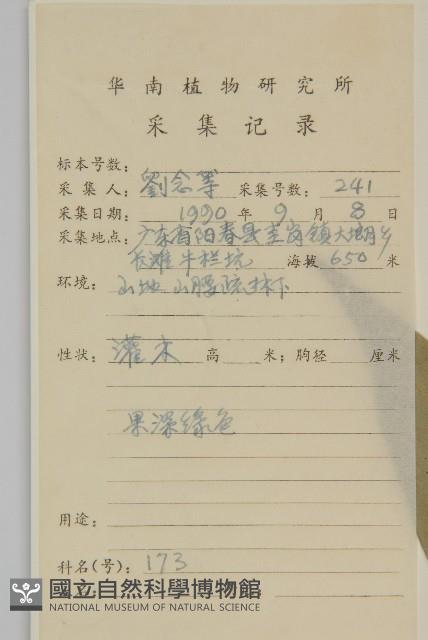 华南植物研究所
采集记录
标本号数:
采集人: 劉念等 采集号数: 241
采集日期: 1990年9月8日
采集地点: 广东省阳春县圭岗镇大朗乡
长滩牛栏坑 海拔650米
环境: 山地山腰疏林下
性状: 灌木 高 米; 胸径 厘米
果深绿色
用途:
科名(号): 173
國立自然科學博物館
NATIONAL MUSEUM OF NATURAL SCIENCE